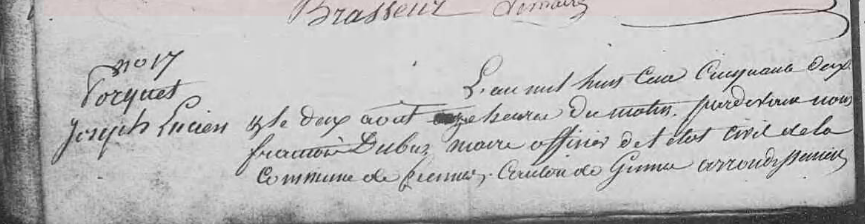 Brasseur Lemaire
n° 17
Torquet
Joseph Lucien
L'an mil huit cent cinquante deux
le deux août onze heures du matin, pardevant nous
françois Dubuz maire officier de l'état civil de la
Commune de Canton de Guines arrondissement